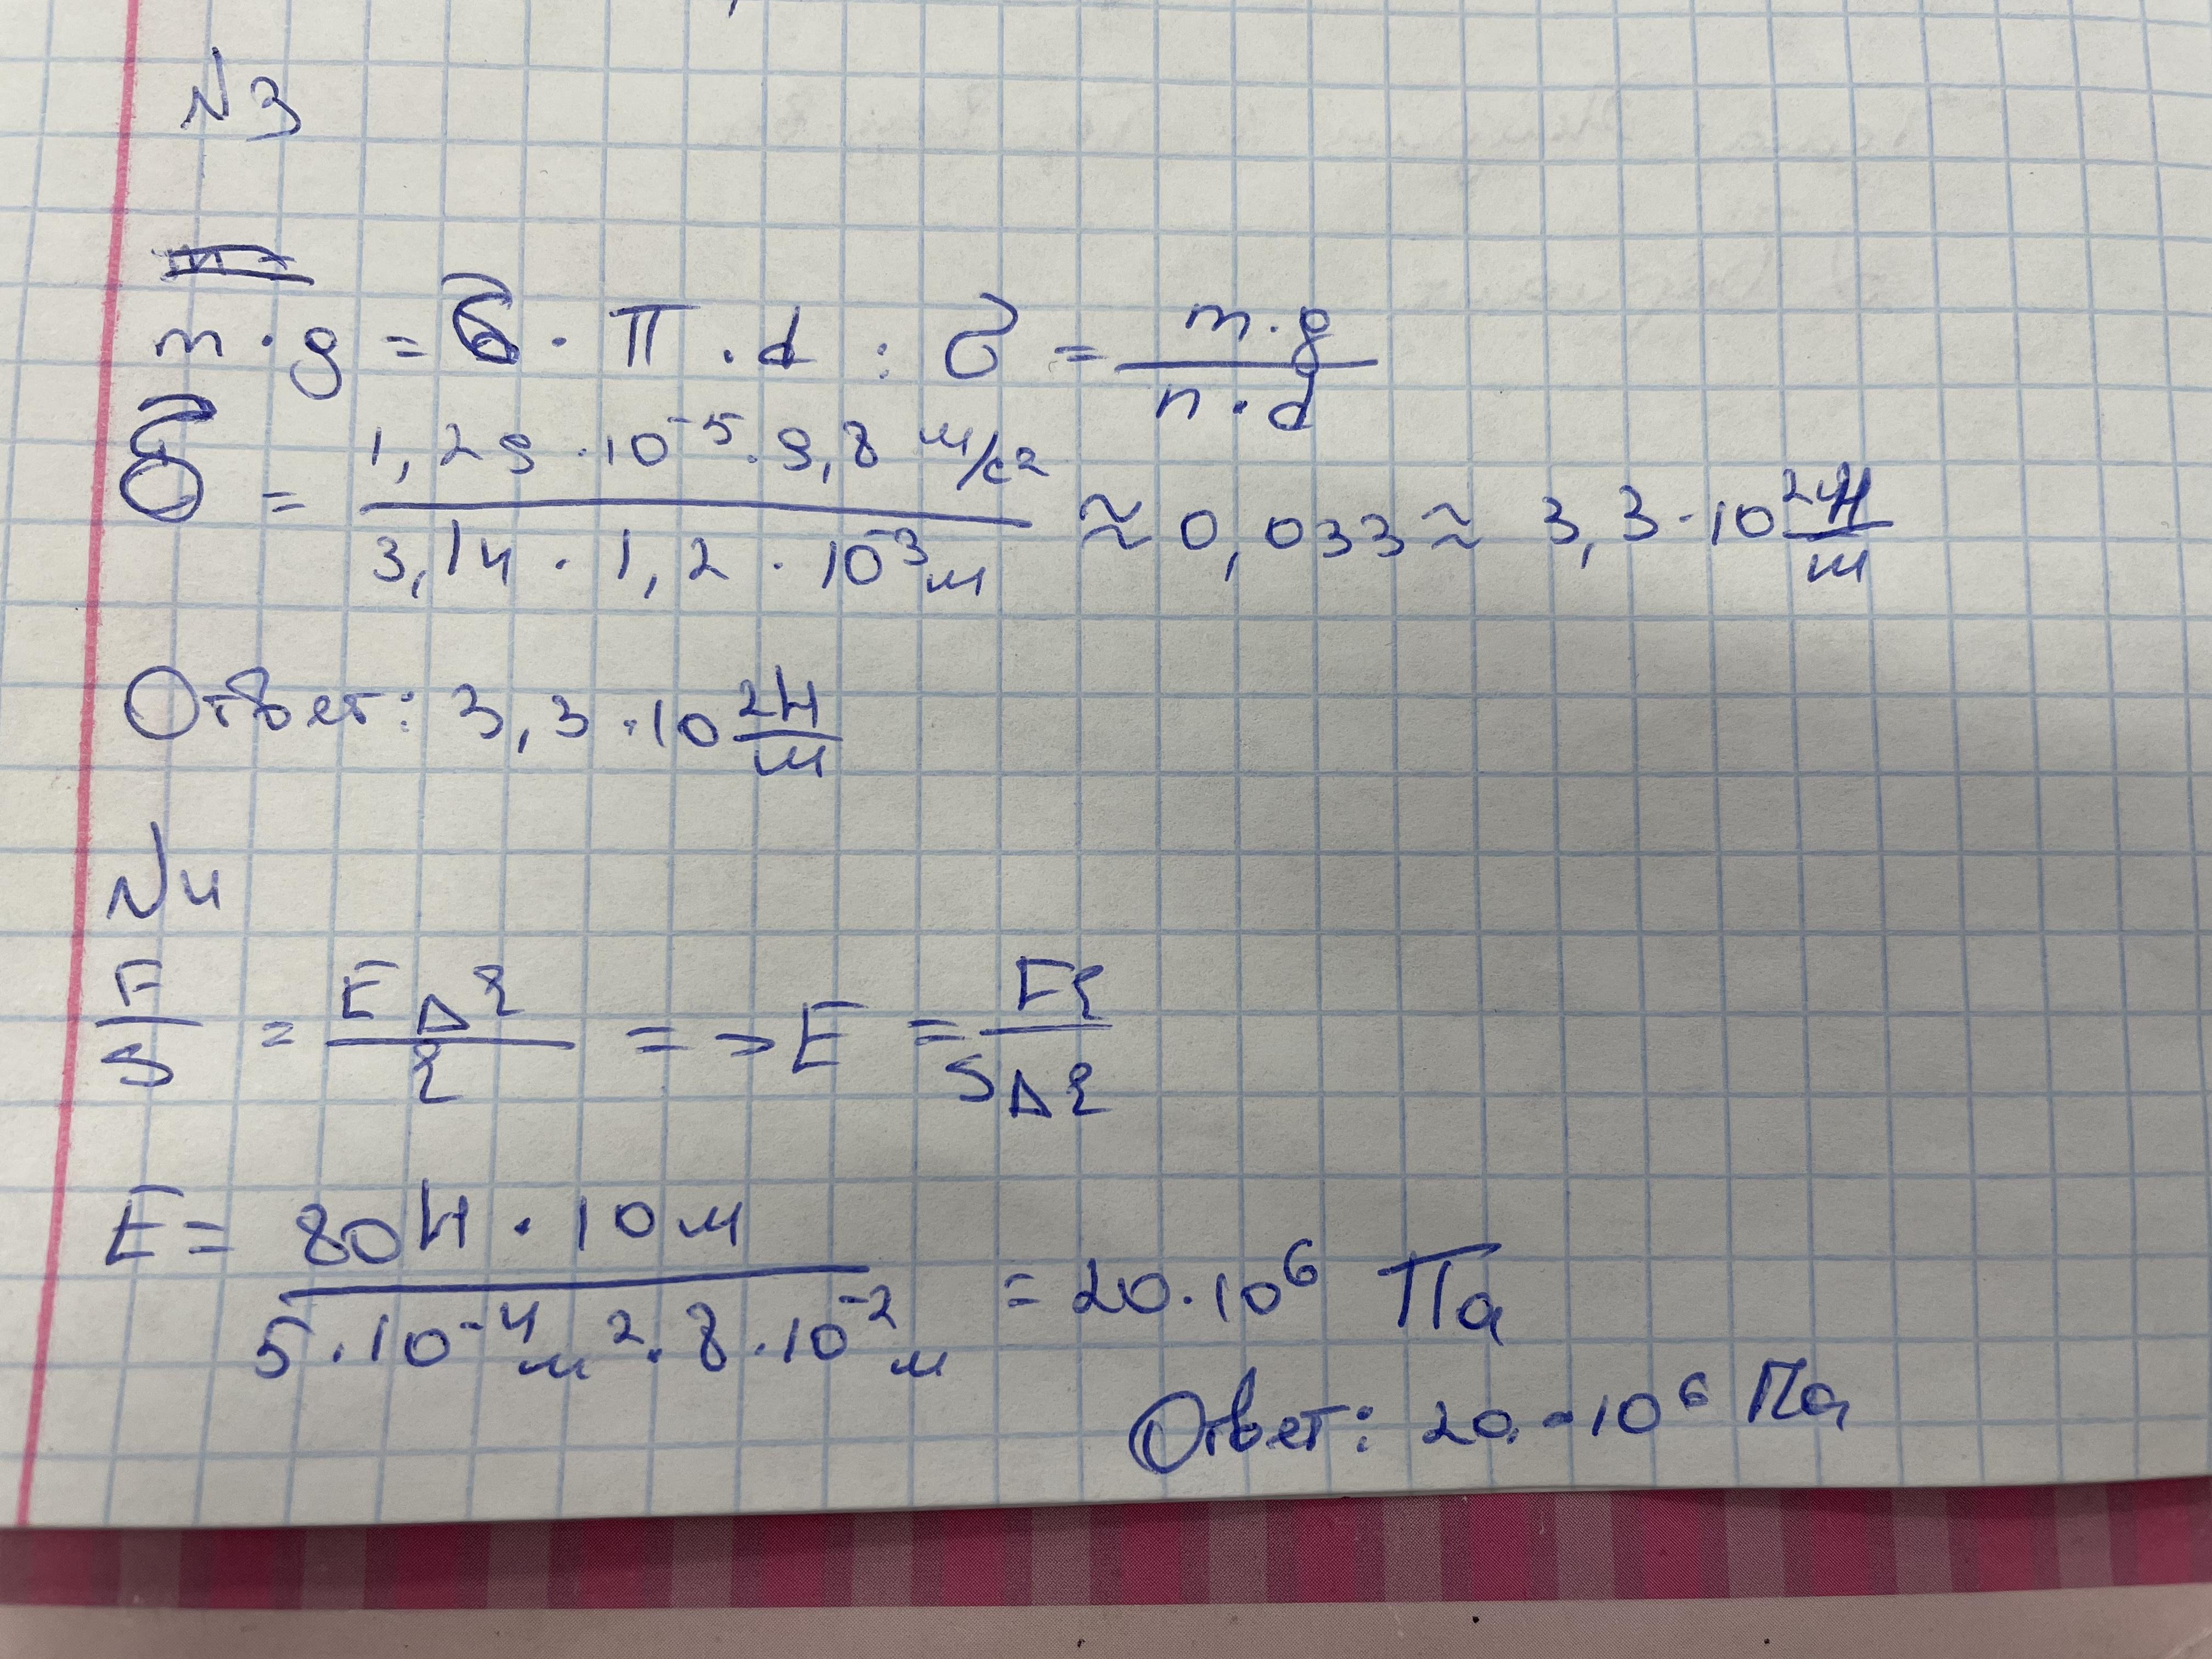 N3
m·g = б · П · d : б = m·g / п·d
б = 1,29 · 10⁻⁵ · 9,8 м/с² / 3,14 · 1,2 · 10⁻³м ≈ 0,033 ≈ 3,3 · 10² Н/м
Ответ: 3,3 · 10² Н/м
N4
F/S = E Δl / l => E = Fl / SΔl
E = 80Н · 10м / 5 · 10⁻⁴м² · 8 · 10⁻²м = 20 · 10⁶ Па
Ответ: 20 · 10⁶ Па